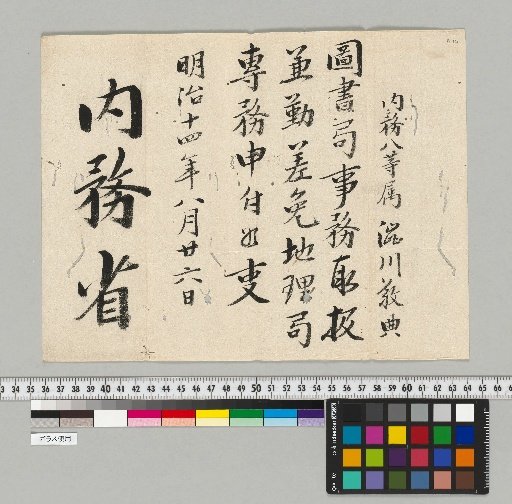 内務八等属 澁川敬典
圖書局事務取扱
兼勤差免地理局
専務申付候事
明治十四年八月廿六日
内務省
33 34 35 36 37 38 39 40 41 42 43 44 45 46 47 48 49 50 51 52 53 54 55 56 57 58 59 60 61 62 63 64 65
ガラス使用